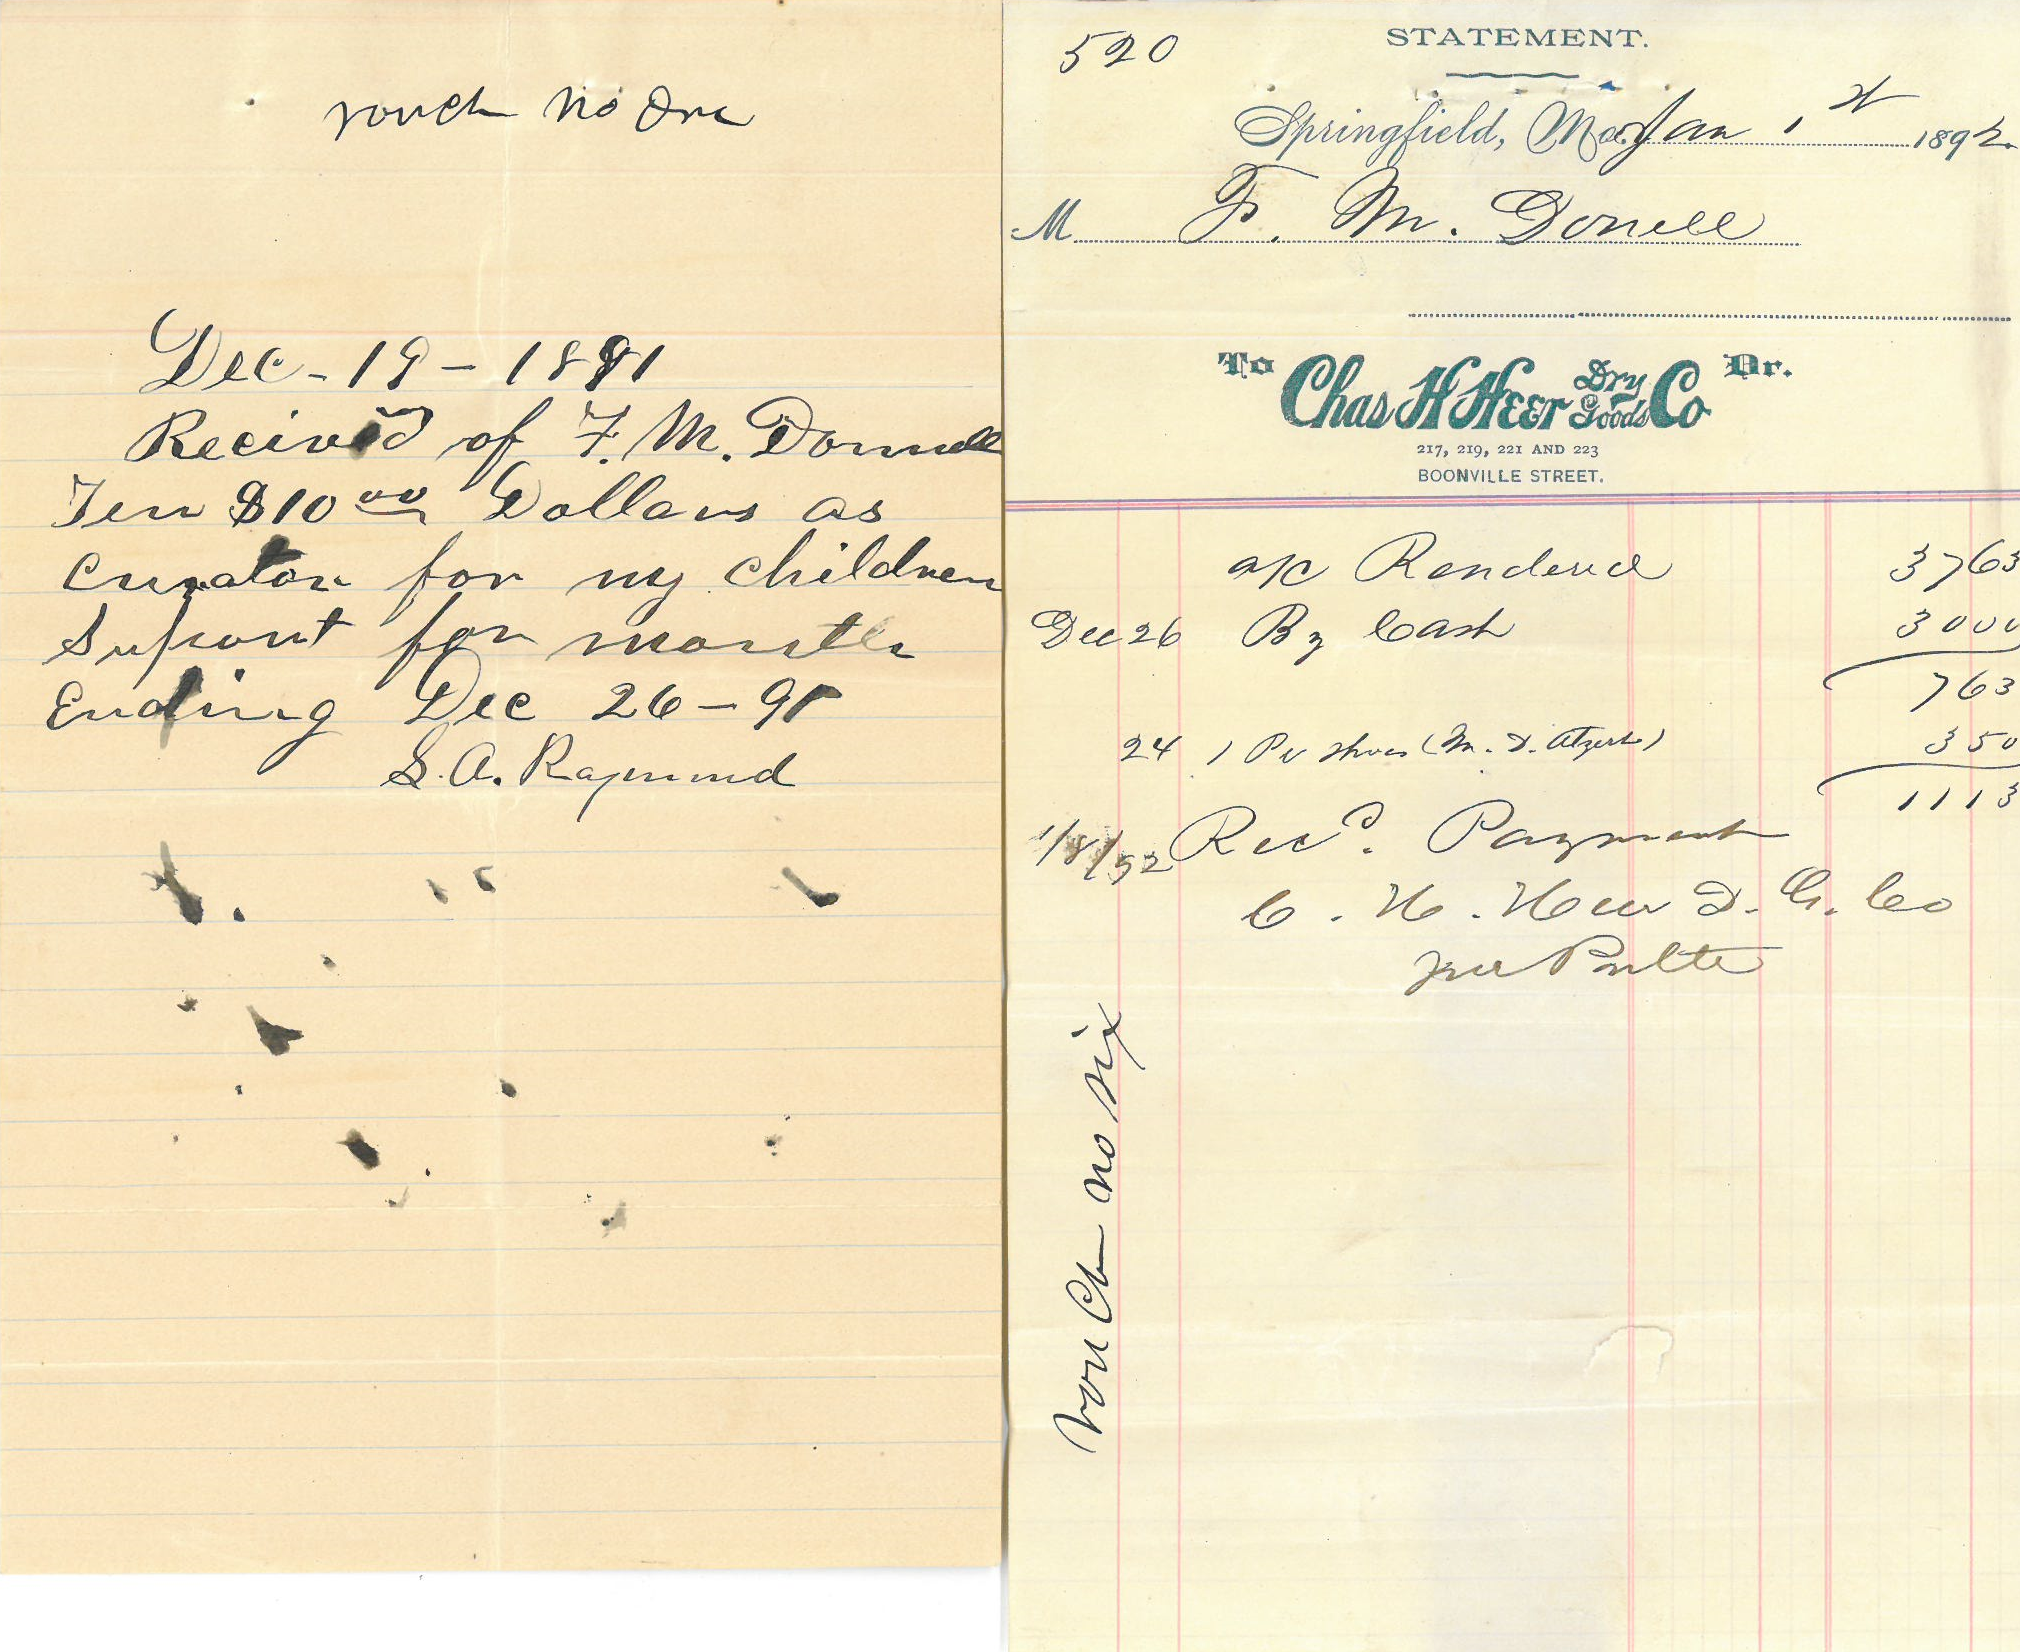 vouch no One
Dec - 19 - 1891
Recived of F. M. Donnell
Ten $10 00 Dollars as
Curator for my children
Suport for month
Ending Dec 26 - 91
S. A. Raymond
520
STATEMENT.
Springfield, Mo. Jan 1st 1892.
M F. M. Donell
To Chas H Heer Dry Goods Co Dr.
217, 219, 221 AND 223
BOONVILLE STREET.
a/c Rendered 3763
Dec 26 By Cash 3000
763
24 1 Pr Shoes (M. D. ) 350
1113
1/8/92 Recd. Payment
C. H. Heer D. G. Co
per Pulte
vouch no six